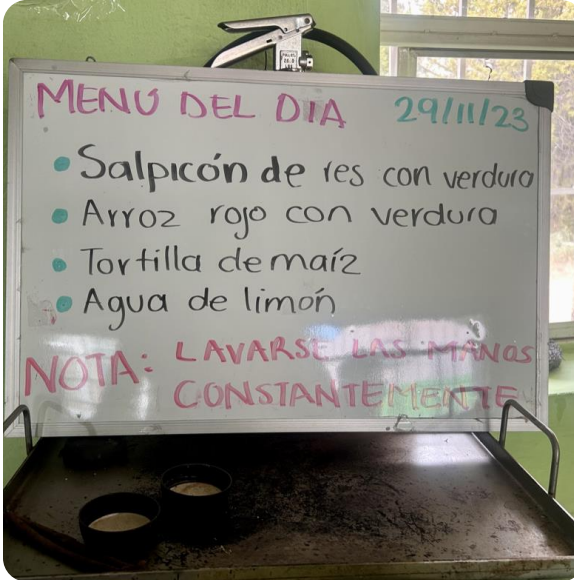 MENÚ DEL DIA 29/11/23
• Salpicón de res con verdura
• Arroz rojo con verdura
• Tortilla de maíz
• Agua de limón
NOTA: LAVARSE LAS MANOS
CONSTANTEMENTE